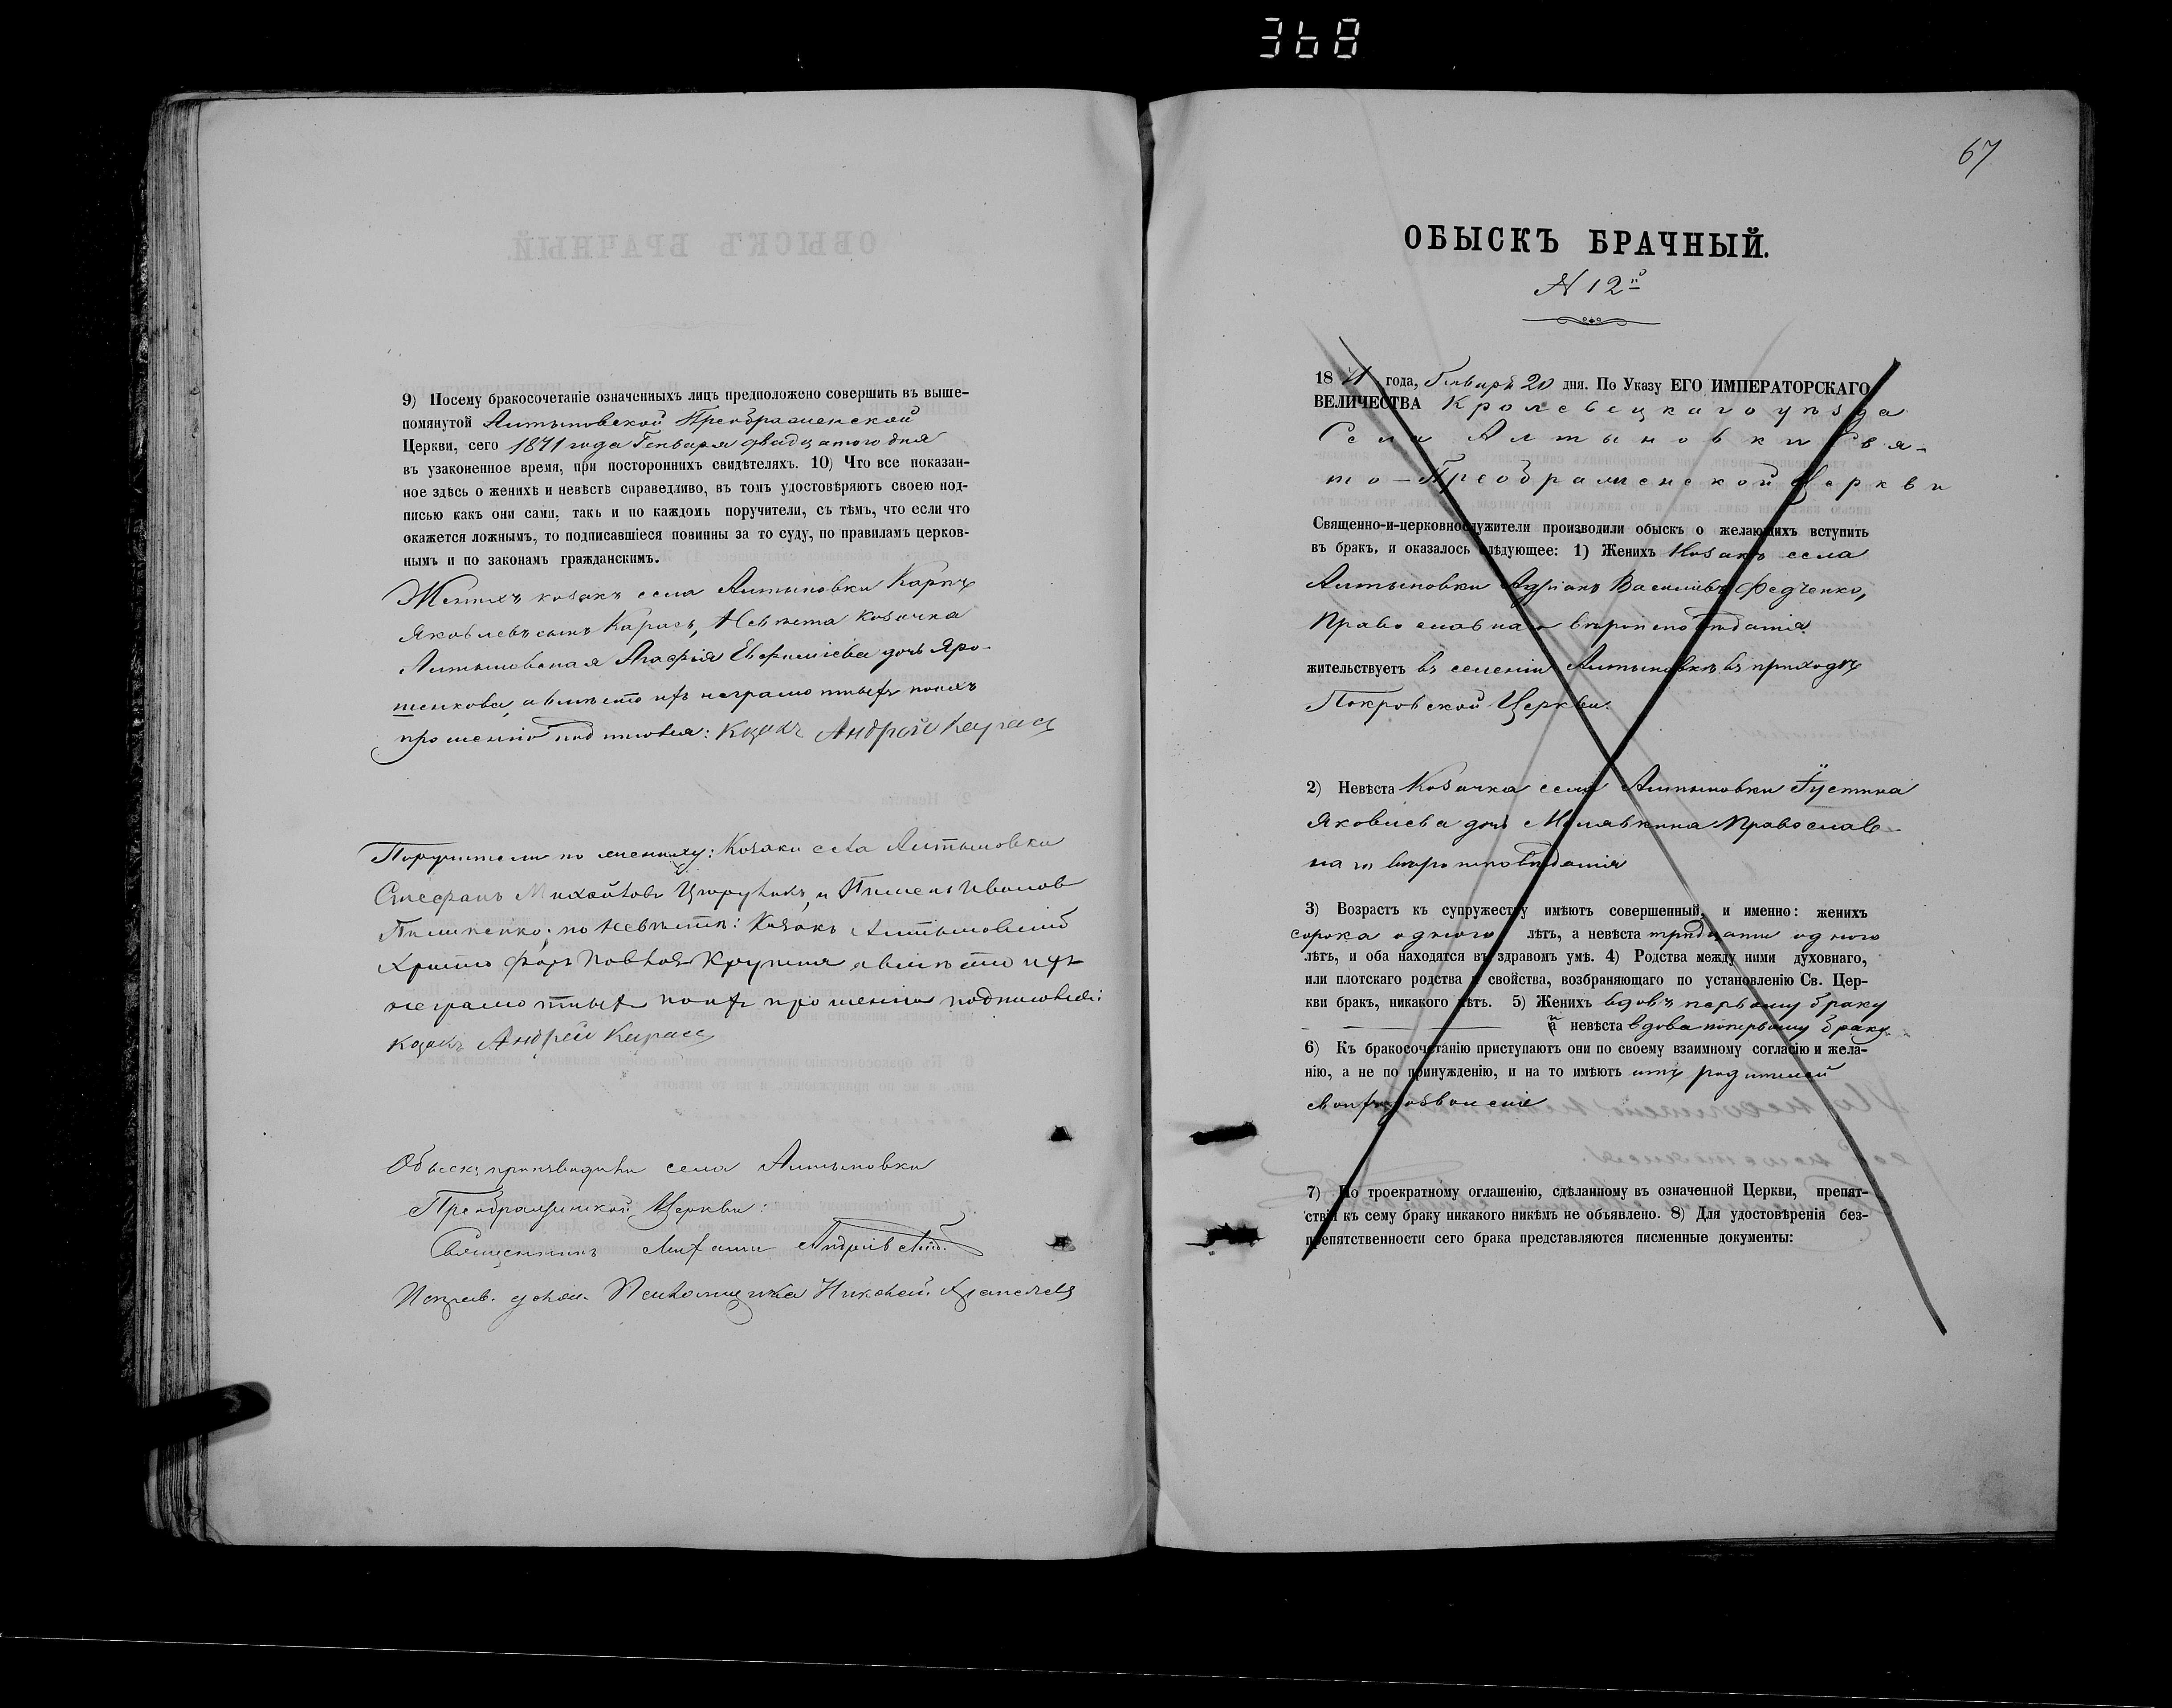 368
9) Посему бракосочетаніе означенныхъ лицъ предположено совершить въ выше-
помянутой Алтыновской Преображенской
Церкви, сего 1871 года Генваря двадцатого дня
въ узаконенное время, при постороннихъ свидѣтеляхъ. 10) Что все показан-
ное здѣсь о женихѣ и невѣстѣ справедливо, въ томъ удостовѣряютъ своею под-
писью какъ они сами, такъ и по каждомъ поручители, съ тѣмъ, что если что
окажется ложнымъ, то подписавшіеся повинны за то суду, по правиламъ церков-
нымъ и по законамъ гражданскимъ.
Женихъ козакъ села Алтыновки Карпъ
Яковлевъ сынъ Карась, Невѣста козачка
Алтыновская Агафія Евфиміева дочь Яро-
шенкова, а вмѣсто ихъ неграмотныхъ по ихъ
прошенію подписался: Козакъ Андрей Карась
Поручители по жениху: Козаки села Алтыновки
Стефанъ Михайловъ и Пимень Ивановъ
по невѣстѣ: Козакъ Алтыновскій
Павловъ а вмѣсто ихъ
неграмотныхъ по ихъ прошенію подписался:
Козакъ Андрей Карась
Обыскъ производили села Алтыновки
Преображенской Церкви:
Священникъ
Николай
67
ОБЫСКЪ БРАЧНЫЙ.
N 12й
1871 года, Генваря 20 дня. По Указу ЕГО ИМПЕРАТОРСКАГО
ВЕЛИЧЕСТВА Кролевецкаго уѣзда
Села Алтыновки Свя-
то-Преображенской Церкви
Священно-и-церковнослужители производили обыскъ о желающихъ вступить
въ бракъ, и оказалось слѣдующее: 1) Женихъ Козакъ села
Алтыновки Адріанъ Васильевъ Федченко,
Православнаго вѣроисповѣданія
жительствуетъ въ селеніи Алтыновкѣ въ приходѣ
Покровской Церкви.
2) Невѣста Козачка села Алтыновки Іустина
Яковлева дочь Православ-
наго вѣроисповѣданія
3) Возрастъ къ супружеству имѣютъ совершенный, и именно: женихъ
сорока одного лѣтъ, а невѣста тридцати одного
лѣтъ, и оба находятся въ здравомъ умѣ. 4) Родства между ними духовнаго,
или плотскаго родства и свойства, возбраняющаго по установленію Св. Цер-
кви бракъ, никакого нѣтъ. 5) Женихъ вдовъ первому браку
и невѣста вдова по первому браку
6) Къ бракосочетанію приступаютъ они по своему взаимному согласію и жела-
нію, а не по принужденію, и на то имѣютъ отъ родителей
своихъ дозволеніе
7) По троекратному оглашенію, сдѣланному въ означенной Церкви, препят-
ствій къ сему браку никакого никѣмъ не объявлено. 8) Для удостовѣренія без-
препятственности сего брака представляются писменные документы: